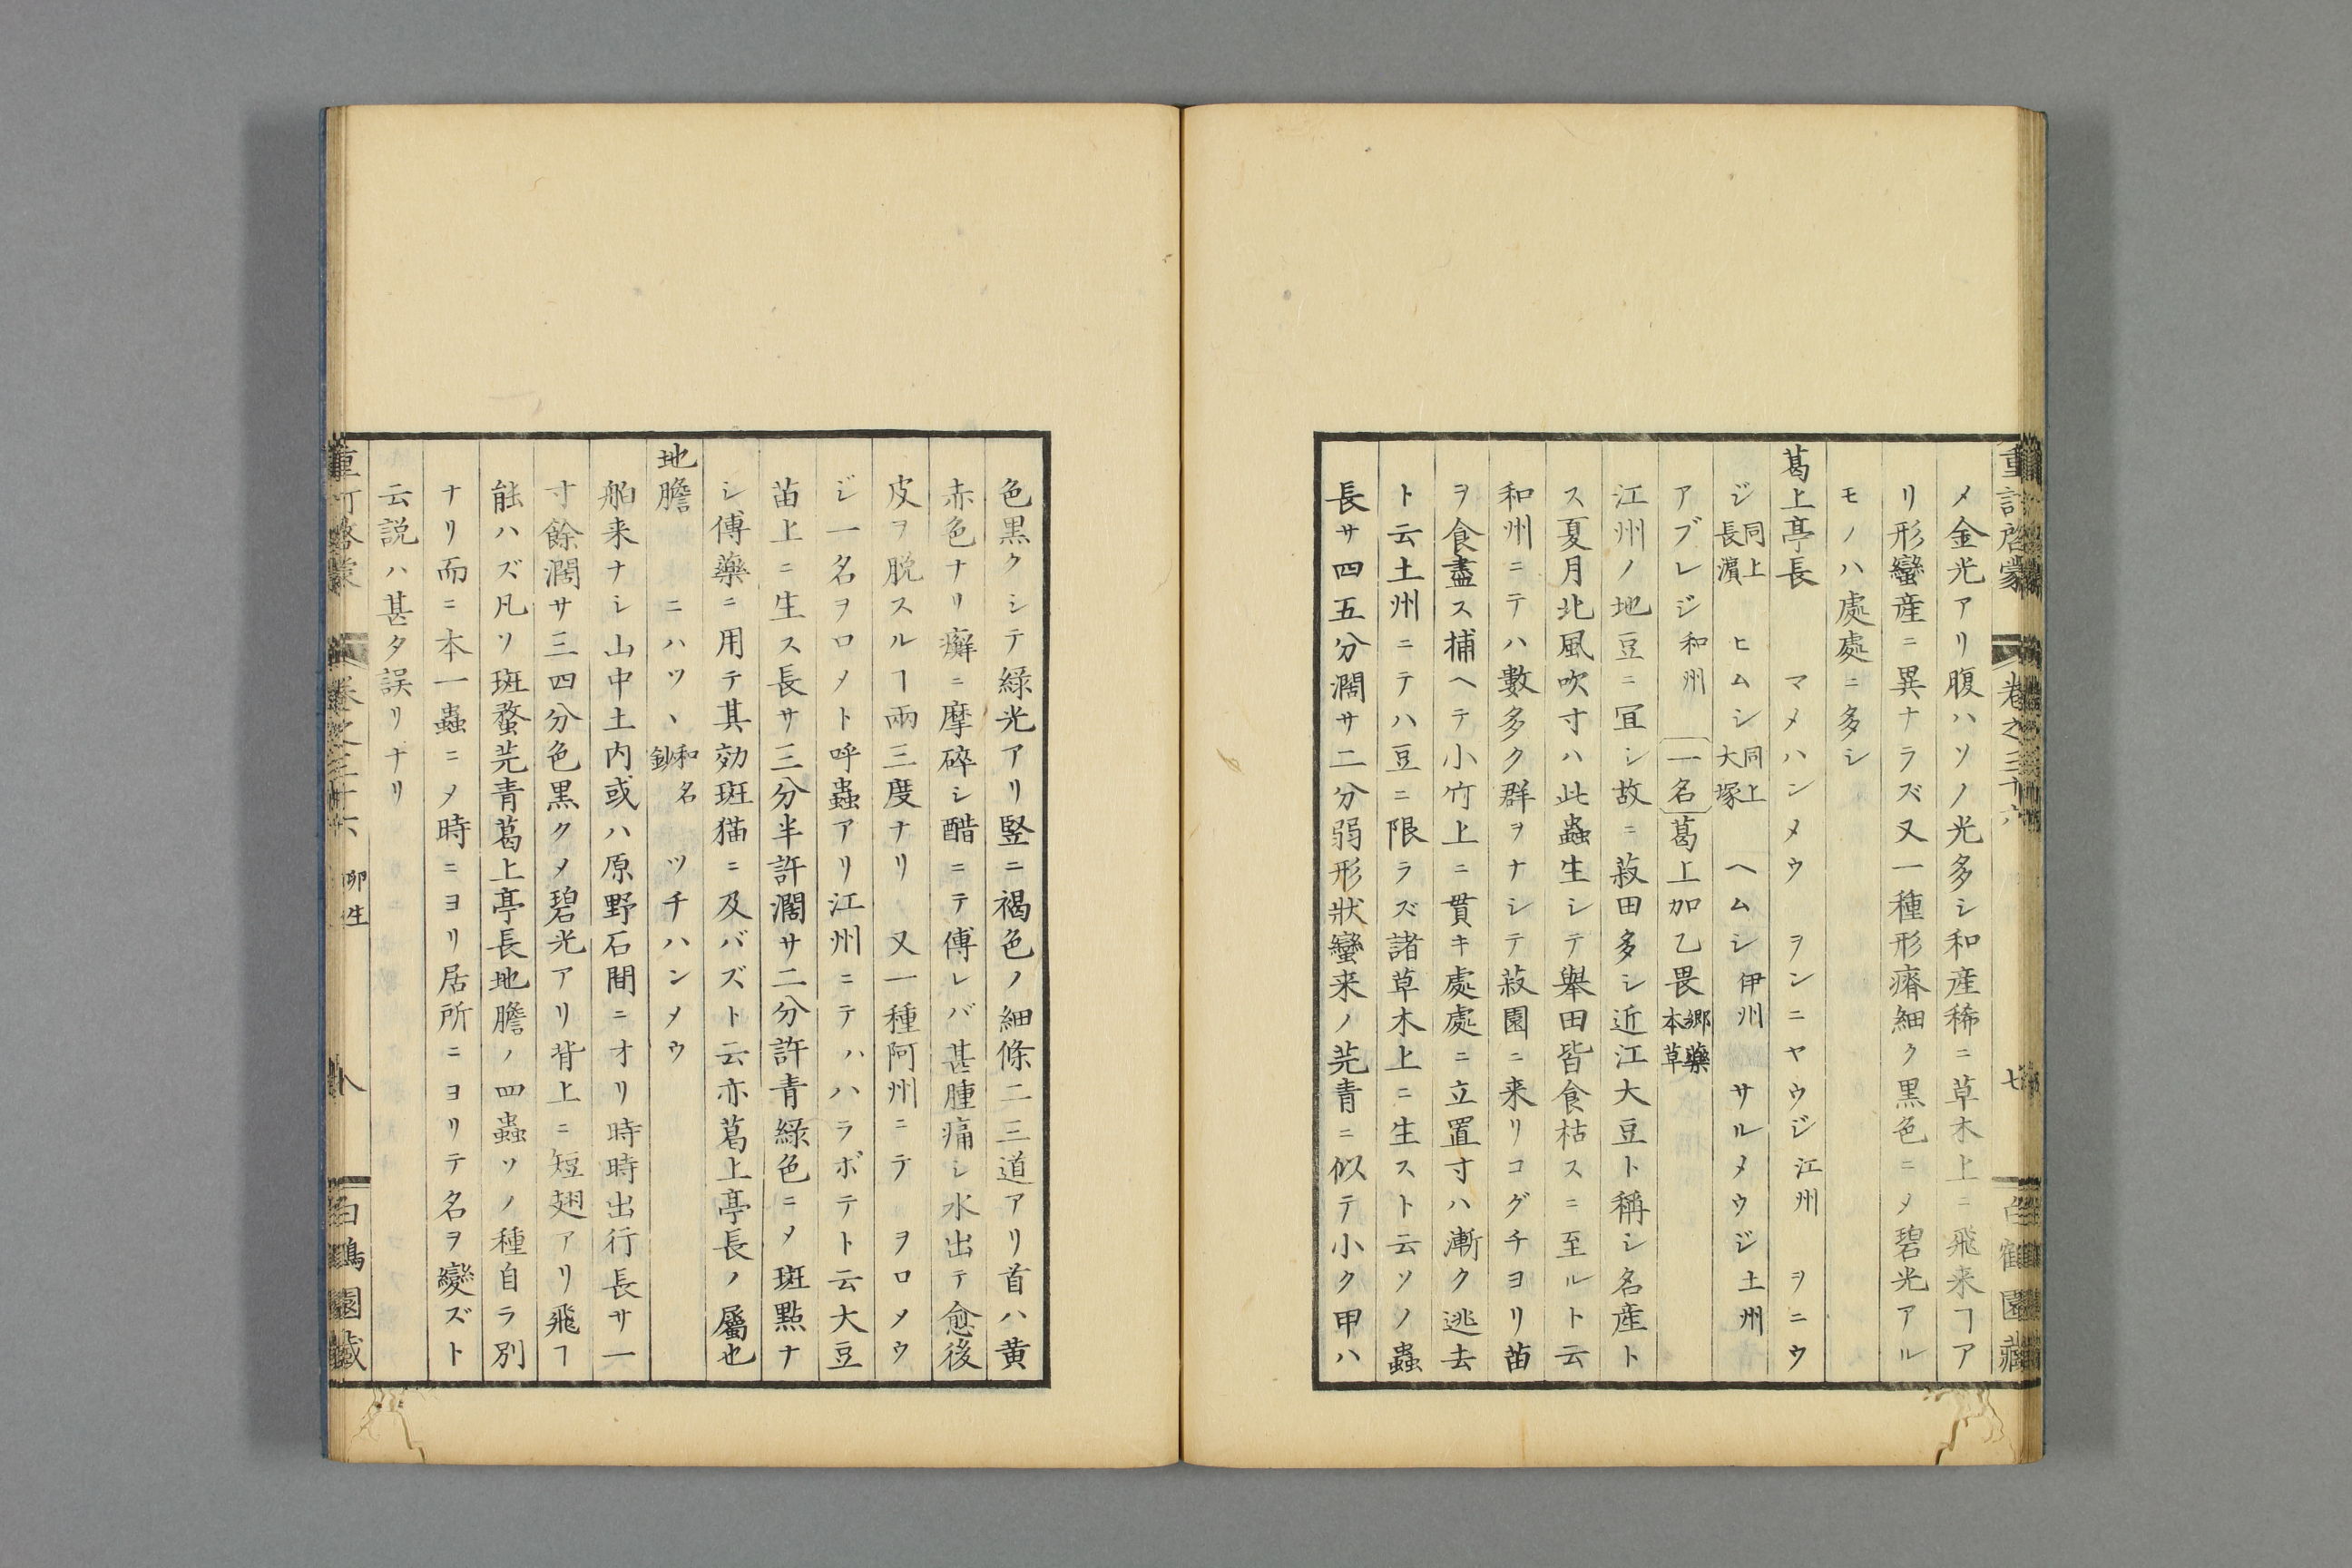 重訂啓蒙 卷之三十六 七 白鶴園藏
メ金光アリ腹ハソノ光多シ和産稀ニ草木上ニ飛来ヿア
リ形蠻産ニ異ナラズ又一種形瘠細ク黒色ニ〆碧光アル
モノハ處處ニ多シ
葛上亭長 マメハンメウ ヲンニヤウジ江州 ヲニウ
ジ同上長濱 ヒムシ同上大塚 ヘムシ伊州 サルメウジ土州
アブレジ和州 一名葛上加乙畏郷藥本草
江州ノ地豆ニ冝シ故ニ菽田多シ近江大豆ト稱シ名産ト
ス夏月北風吹寸ハ此蟲生シテ舉田皆食枯スニ至ルト云
和州ニテハ數多ク群ヲナシテ菽園ニ来リコグチヨリ苗
ヲ食盡ス捕ヘテ小竹上ニ貫キ處處ニ立置寸ハ漸ク逃去
ト云土州ニテハ豆ニ限ラズ諸草木上ニ生スト云ソノ蟲
長サ四五分濶サ二分弱形狀蠻来ノ芫青ニ似テ小ク甲ハ
色黒クシテ緑光アリ竪ニ褐色ノ細條二三道アリ首ハ黄
赤色ナリ癬ニ摩碎シ醋ニテ傅レバ甚腫痛シ水出テ愈後
皮ヲ脱スルヿ兩三度ナリ 又一種阿州ニテ ヲロメウ
ジ一名ヲロメト呼蟲アリ江州ニテハハラボテト云大豆
苗上ニ生ス長サ三分半許濶サ二分許青緑色ニ〆斑點ナ
シ傅藥ニ用テ其効斑猫ニ及バズト云亦葛上亭長ノ屬也
地膽 ニハツヽ和名鈔 ツチハンメウ
舶来ナシ山中土内或ハ原野石間ニオリ時時出行長サ一
寸餘濶サ三四分色黒ク〆碧光アリ背上ニ短翅アリ飛ヿ
能ハズ凡ソ斑蝥芫青葛上亭長地膽ノ四蟲ソノ種自ラ別
ナリ而ニ本一蟲ニ〆時ニヨリ居所ニヨリテ名ヲ變ズト
云説ハ甚タ誤リナリ
重訂啓蒙 卷之三十六 卵生 八 白鶴園藏